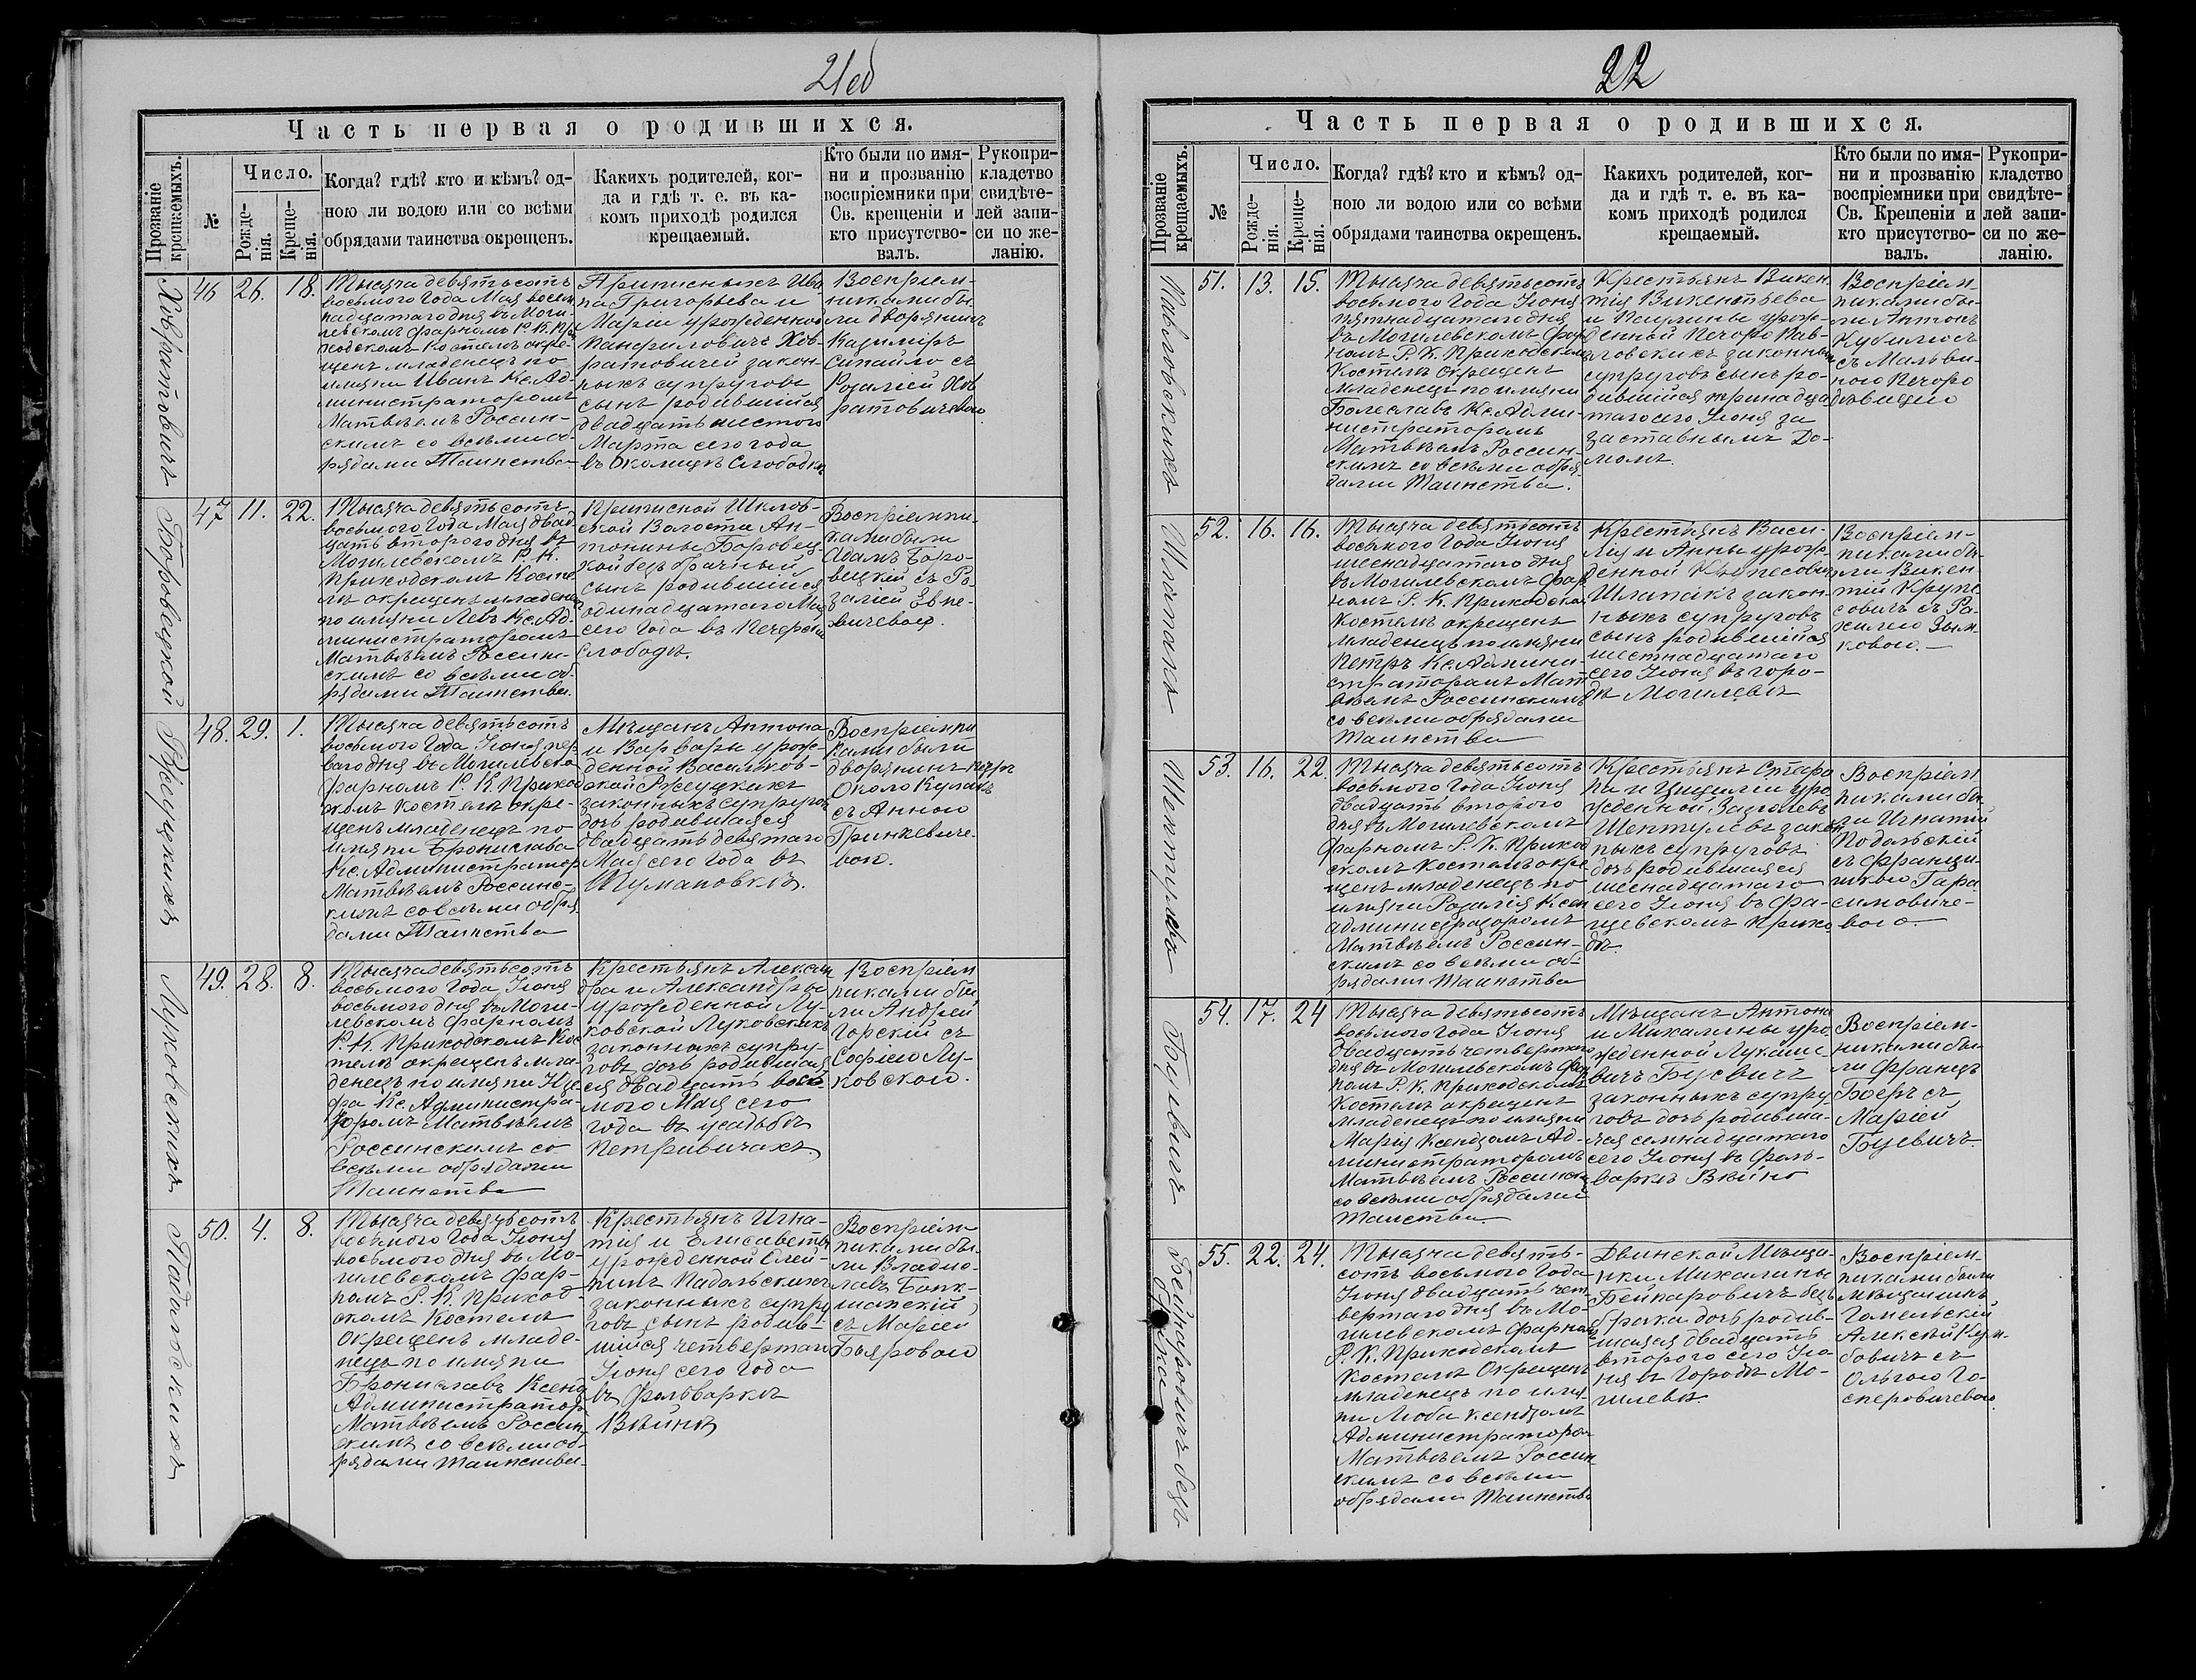 21об
Часть первая о родившихся.
Прозваніе крещаемыхъ.
№
Число.
Рожде-
нія.
Креще-
нія.
Когда? гдѣ? кто и кѣмъ? од-
ною ли водою или со всѣми
обрядами таинства окрещенъ.
Какихъ родителей, ког-
да и гдѣ т. е. въ ка-
комъ приходѣ родился
крещаемый.
Кто были по имя-
ни и прозванію
воспріемники при
Св. крещеніи и
кто присутство-
валъ.
Рукопри-
кладство
свидѣте-
лей запи-
си по же-
ланію.
Ховратовичъ
46
26.
18.
Тысяча девятьсотъ
восьмого Года Мая восем
надцатаго дня въ Моги-
левскомъ фарномъ Р. К. При
ходскомъ Костелѣ окре-
щенъ младенецъ по
имяни Иванъ Кс. Ад-
министраторомъ
Матвѣемъ Россин-
скимъ со всѣми об-
рядами Таинства
Приписныхъ Ива
на Григорьева и
Маріи урожденной
Панфиловичъ Хов-
ратовичей закон-
ныхъ супруговъ
сынъ родившійся
двадцать шестого
Марта сего года
въ Околицѣ Слободкѣ
Воспріем-
никами бы-
ли дворянинъ
Казиміръ
Сипайло съ
Розаліей Хов
ратовичевою
Боровецкой
47
11.
22.
Тысяча девятьсотъ
восьмого Года Мая двад
цать второго дня въ
Могилевскомъ Р. К.
Приходскомъ Косте
лѣ окрещенъ младенец
по имяни Левъ Кс. Ад-
министраторомъ
Матвѣемъ Россин-
скимъ со всѣми об-
рядами Таинства.
Приписной Шклов-
ской Волости Ан-
тонины Боровец-
кой безбрачный
сынъ родившійся
одинадцатаго Мая
сего Года въ Печерской
Слободѣ.
Воспріемни-
ками были
Адамъ Боро-
вецкій съ Ро-
заліей Евне-
вичевой.
Ржеуцкихъ
48.
29.
1.
Тысяча девятьсотъ
восьмого Года Іюня пер-
ваго дня въ Могилевско
фарномъ Р. К. Приход
скомъ костелѣ окре-
щенъ младенецъ по
имяни Бронислава
Кс. Администратор
Матвѣемъ Россинс-
кимъ со всѣми обря-
дами Таинства
Мѣщанъ Антона
и Варвары урож-
денной Васильков-
ской Ржеуцкихъ
законныхъ супругов
дочь родившаяся
двадцать девятаго
Мая сего Года въ
Шумановкѣ.
Воспріемни
ками были
дворянинъ Петръ
Околокулакъ
съ Анною
Гринкевиче-
вою.
Луковскихъ
49.
28.
8.
Тысяча девятьсотъ
восьмого Года Іюня
восьмого дня въ Моги-
левскомъ фарномъ
Р. К. Приходскомъ Кос
телѣ окрещенъ мла-
денецъ по имяни Юзе-
фа Кс. Администра-
торомъ Матвѣемъ
Россинскимъ со
всѣми обрядами
Таинства
Крестьянъ Алексан
дра и Александры
урожденной Лу-
ковской Луковскихъ
законныхъ супру-
говъ дочь родившая
ся двадцать вось-
мого Мая сего
года въ усадьбѣ
Петривичахъ.
Воспріем
никами бы
ли Андрей
Горскій съ
Софіею Лу-
ковской.
Падальскихъ
50.
4.
8.
Тысяча девятьсотъ
восьмого Года Іюня
восьмого дня въ Мо-
гилевскомъ Фар-
номъ Р. К. Приход-
скомъ Костелѣ
Окрещенъ младе-
нецъ по имяни
Брониславъ Ксенд
Администратор
Матвѣемъ Россин
скимъ со всѣми об-
рядами Таинства.
Крестьянъ Игна-
тія и Елисаветы
урожденной Олей-
никъ Падальскихъ
законныхъ супру
говъ сынъ родив-
шійся четвертаго
Іюня сего Года
въ Фольваркѣ
Вѣйнѣ
Воспріем-
никами бы-
ли Влади-
лавъ Банк-
шанскій
съ Маріей
Бояровою
22
Часть первая о родившихся.
Прозваніе крещаемыхъ.
№
Число.
Рожде-
нія.
Креще-
нія.
Когда? гдѣ? кто и кѣмъ? од-
ною ли водою или со всѣми
обрядами таинства окрещенъ.
Какихъ родителей, ког-
да и гдѣ т. е. въ ка-
комъ приходѣ родился
крещаемый.
Кто были по имя-
ни и прозванію
воспріемники при
Св. Крещеніи и
кто присутство-
валъ.
Рукопри-
кладство
свидѣте-
лей запи-
си по же-
ланію.
Павловскихъ
51.
13.
15.
Тысяча девятьсотъ
восьмого Года Іюня
пятнадцатаго дня
въ Могилевскомъ фар
номъ Р. К. Приходском
Костелѣ окрещенъ
младенецъ по имяни
Болеславъ Кс. Адми-
нистраторомъ
Матвѣемъ Россин-
скимъ со всѣми обря-
дами Таинства.
Крестьянъ Викен
тія Викентьева
и Паулины урож-
денной Печоро Пав-
ловскихъ законных
супруговъ сынъ ро-
дившійся тринадца
таго сего Іюня за
заставнымъ До-
момъ.
Воспріем
никами бы-
ли Антонъ
Кубилюсъ
съ Мальви-
ною Печоро
дѣвицею
Шпапакъ
52.
16.
16.
Тысяча девятьсотъ
восьмого Года Іюня
шеснадцатаго дня
въ Могилевскомъ Фар
номъ Р. К. Приходском
костелѣ окрещенъ
младенецъ по имяни
Петръ Кс. Админи-
страторамъ Мат-
вѣемъ Россинскимъ
со всѣми обрядами
Таинства
Крестьянъ Васи-
лія и Анны урож-
денной Крупесович
Шпапакъ закон-
ныхъ супруговъ
сынъ родившійся
шестнадцатаго
сего Іюня въ горо-
дѣ Могилевѣ
Воспріем-
никами бы-
ли Викен-
тій Крупе-
совичъ съ Ро-
заліею Зын-
ковою.
Шептулева
53.
16.
22.
Тысяча девятьсотъ
восьмого Года Іюня
двадцать второго
дня въ Могилевскомъ
Фарномъ Р. К. Приход
скомъ Костелѣ окре
щенъ младенецъ по
имяни Розалія Ксен
администраторомъ
Матвѣемъ Россин-
скимъ со всѣми об-
рядами Таинства
Крестьянъ
и Цициліи уро
жденной
Шептулевъ закон
ныхъ супруговъ
дочь родившаяся
шеснадцатаго
сего Іюня въ Фа-
щевскомъ Прихо
дѣ.
Воспріем
никами бы-
ли Игнатій
Подольскій
съ Франци-
шкою Гара-
симовиче-
вою.
Бусвичъ
54.
17.
24
Тысяча девятьсотъ
восьмого Года Іюня
двадцать четвертаго
дня въ Могилевскомъ Фар
номъ Р. К. Приходскомъ
Костелѣ окрещенъ
младенецъ по имяни
Марія Ксендзомъ Ад-
министраторомъ
Матвѣемъ Россинским
со всѣми обрядами
Таиства.
Мѣщанъ Антона
и Михалины уро
жденной Лукаше
вичъ Бусвичъ
законныхъ супру
говъ дочь родивша-
яся семнадцатаго
сего Іюня въ Фоль-
варкѣ Вѣйно
Воспріем-
никами бы-
ли Францъ
Боеръ съ
Маріей
Бусевичъ
Бейнаровичъ безъ
брака
55.
22.
24.
Тысяча девять-
сотъ восьмого Года
Іюня двадцать чет
вертаго дня въ Мо-
гилевскомъ Фарном
Р. К. Приходскомъ
Костелѣ Окрещенъ
младенецъ по имя-
ни Люба ксендзомъ
Администраторо
Матвѣемъ Россин
скимъ со всѣми
обрядами Таинства
Двинской Мѣща-
нки Михалины
Бейнаровичъ безъ
брака дочь родив-
шаяся двадцать
второго сего Ію
ня въ Городѣ Мо-
гилевѣ.
Воспріем-
никами были
мѣщанинъ
Гомельскій
Алексѣй
бовичъ съ
Ольгою Го-
сперовичевою.